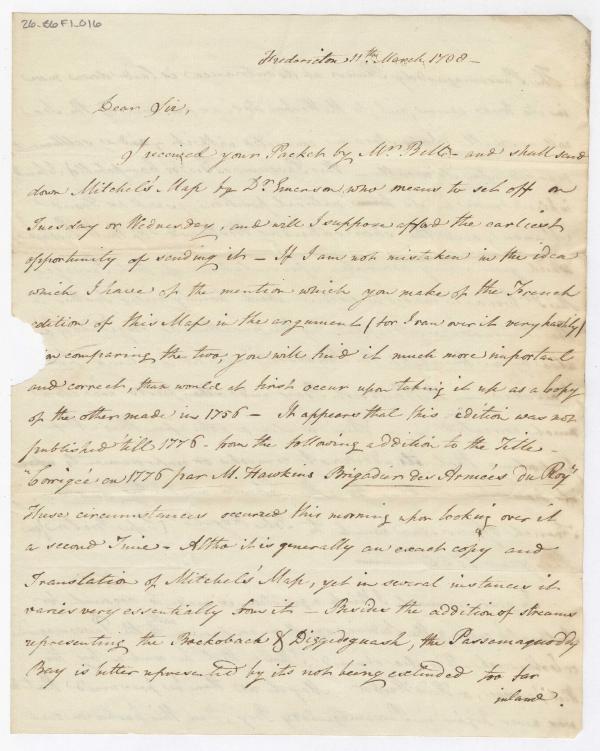 26-86F1-016
Fredericton 11th March 1798-
Dear Sir,
I received your Packet by Mr. Bell - and shall send
down Mitchel's Map by Dr. Emerson, who means to set off on
Tuesday or Wednesday, and will I suppose afford the earliest
opportunity of sending it - If I am not mistaken in the idea
which I have of the mention which you make of the French
edition of this Map in the argument (for I ran over it very hastily)
in comparing the two, you will find it much more important
and correct, than would at first occur upon taking it up as a Copy
of the other made in 1756 - It appears that this edition was not
published till 1776 - from the following addition to the Title -
"Corrigée en 1776 par M. Hawkins Brigadier des Armées du Roy"
these circumstances occurred this morning upon looking over it
a second Time - Altho it is generally an exact copy and
Translation of Mitchel's Map, yet in several instances it
varies very essentially from it - Besides the addition of streams
representing the Bockoback & Diggedeguash, the Passemaquoddy
Bay is better represented by its not being extended so far
inland.